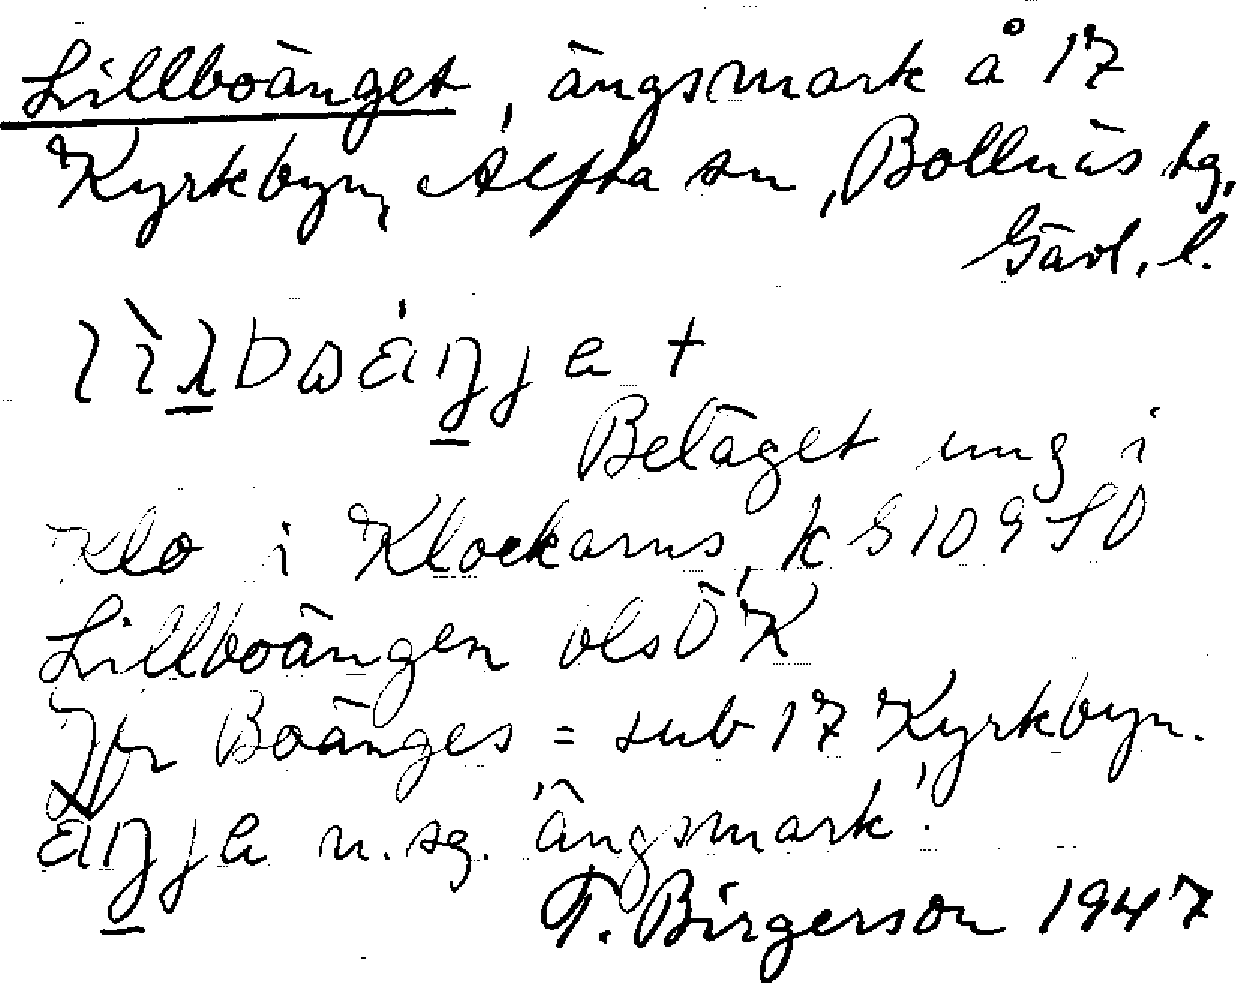 Lillboänget, ängsmark å 17
Kyrkbyn, Alfta sn, Bollnäs hg,
Gävl. l.
Beläget ung i
Klo i Klockarns, k S 109 SO
Lillboängen bl s Ö K
Jfr Boänges = sub 17 Kyrkbyn.
n. sg. 'ängsmark'.
T. Birgerson 1947